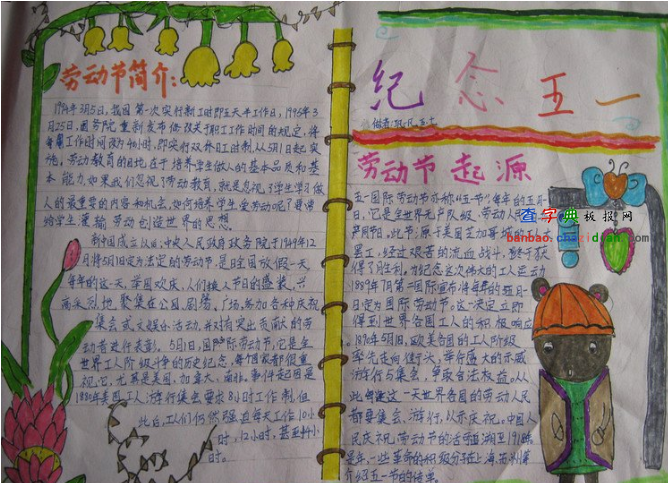 劳动节简介:
1994年3月5日,我国第一次实行新工时即五天半工作日,1995年3
月25日,国务院重新发布修改关于职工工作时间的规定,将
每周工作时间改为40小时,即实行双休日工时制,从5月1日起实
施。劳动教育的目地在于培养学生做人的基本品质和基
本能力,如果我们忽视了劳动教育,就是忽视了学生学习做
人的最重要的内容和机会,如何培养学生爱劳动呢?要常
给学生灌输劳动创造世界的思想
新中国成立以后,中央人民政府政务院于1949年12
月将5月1日定为法定的劳动节,是日全国放假一天
每年的这一天,举国欢庆,人们换上节日的盛装,兴
高采烈地聚集在公园、剧场、广场,参加各种庆祝
集会或文娱活动,并对有突出贡献的劳
动者进行表彰。5月1日,国际劳动节,它是全
世界工人阶级斗争的历史纪念,每个国家都很重
视它,尤其是美国、加拿大、南非。事件起因是
1886年美国工人游行集会要求8小时工作制,但
此后,工人们仍然强迫每天工作10小
时,12小时,甚至
时。
纪念五一
劳动节起源
五一国际劳动节亦称"五一节"每年的五月一
日,它是全世界无产阶级、劳动人民的
节日,此节源于美国芝加哥城的工人大
罢工,经过艰苦的流血战斗,终于获
得了胜利,为纪念这次伟大的工人运动
1889年7月第二国际宣布将每年的五月一
日定为国际劳动节。这一决定立即
得到世界各国工人的积极响应
1890年5月1日,欧美各国的工人阶级
率先走向街头,举行盛大的示威
游行与集会,争取合法权益。从
此每逢这一天世界各国的劳动人民
都要集会、游行,以示庆祝。中国人
民庆祝劳动节的活动可追溯至1918年
是年,一些革命的积极分子在上海、苏州
介绍五一节的传单。
查字典板报网
banbao.chazidian.com